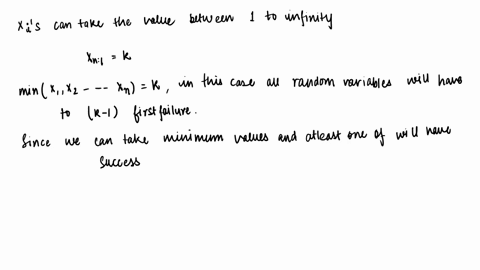 Xi's can take the value between 1 to infinity
Xn:1 = k
min(X1, X2 --- Xn) = k, in this case all random variables will have
to (k-1) first failure.
Since we can take minimum values and atleast one of will have
success